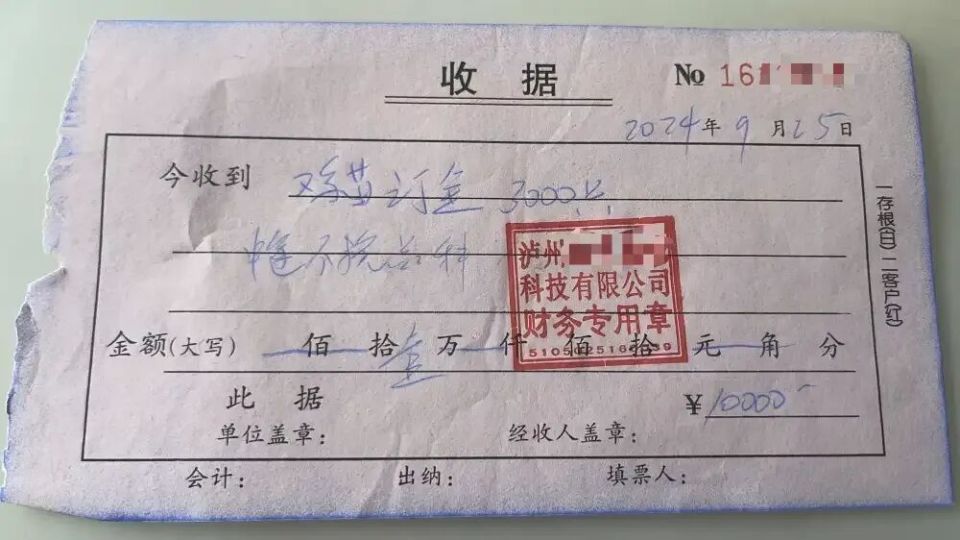 收据
No 16
2024年9月25日
今收到 鸡苗订金 3000只
中途不换饲料
泸州
科技有限公司
财务专用章
金额(大写) 佰 拾 壹 万 仟 佰 拾 元 角 分
此据
¥10000-
单位盖章: 经收人盖章:
会计: 出纳: 填票人:
一存根(白)二客户(红)